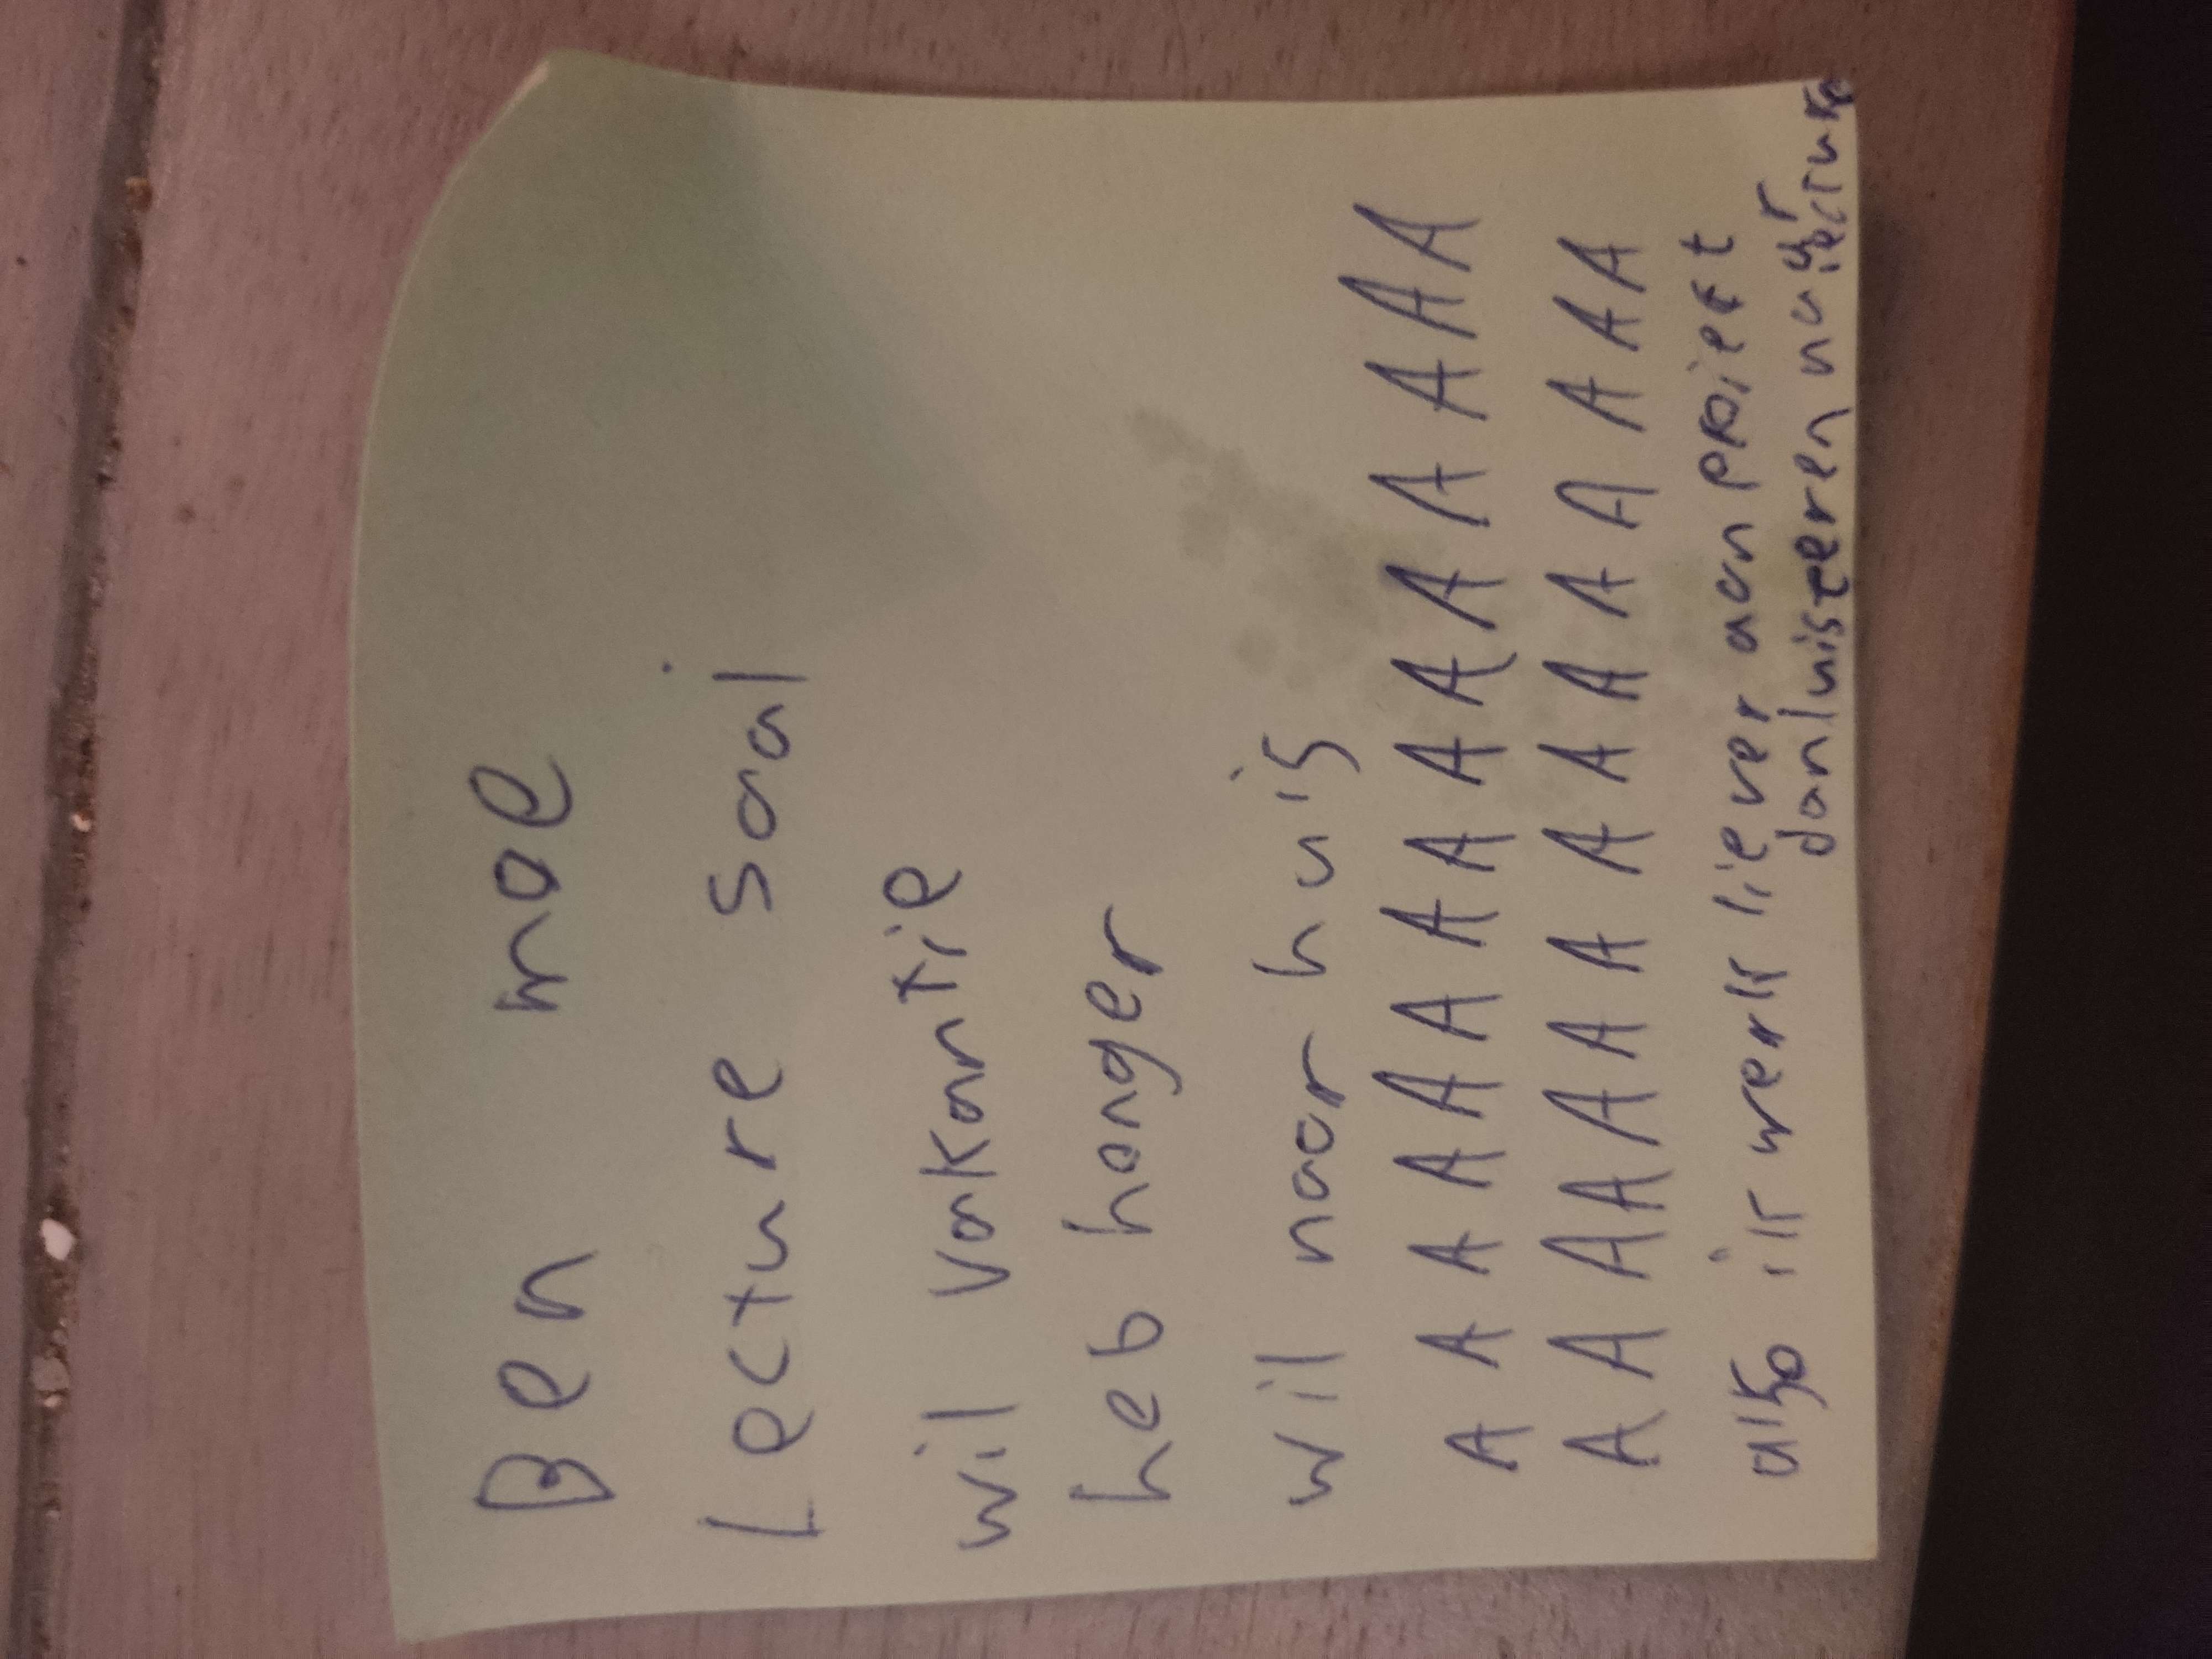 Ben moe
Lecture saai
wil vakantie
heb honger
wil naar huis
A A A A A A A A A A A A A A A
A A A A A A A A A A A A A A A
also ik werk liever aan project
dan luisteren naar lecture